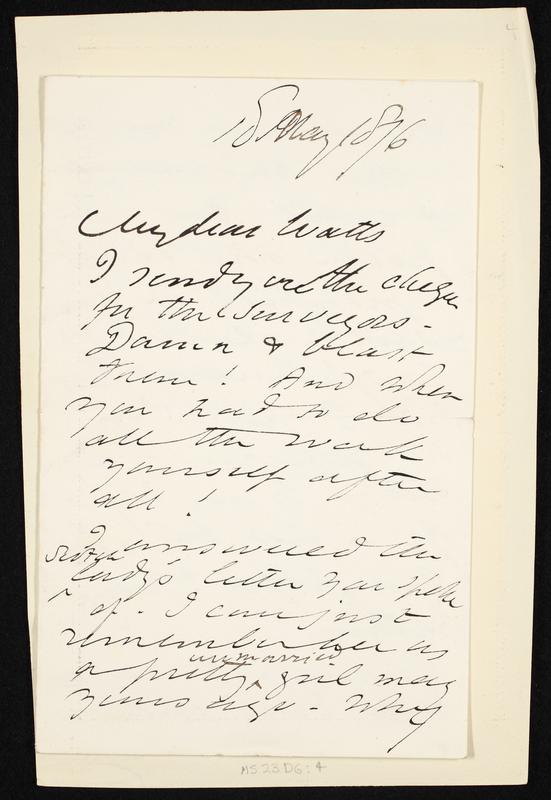 4
18 May 1876
My dear Watts
I send you the cheque
for the Surveyors -
Damn & blast
them! And when
you had to do
all the work
yourself after
all!
I answered the
Scotch
lady's letter you spoke
of. I can just
remember her as
unmarried
a pretty girl many
years ago - Why
MS 23 D6:4